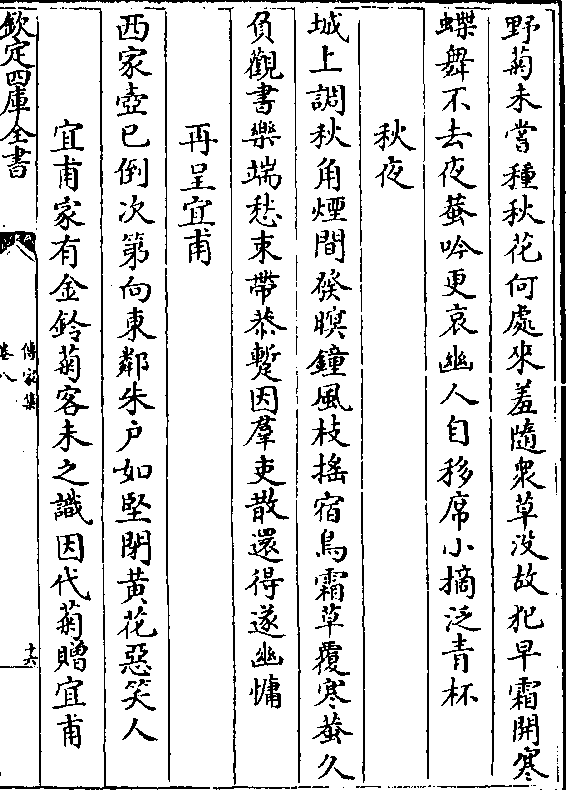 野菊未嘗種秋花何處來羞隨衆草没故犯早霜開寒
蝶舞不去夜蛩吟更哀幽人自移席小摘泛青杯
秋夜
城上調秋角煙間發暝鐘風枝揺宿鳥霜草覆寒蛩久
負觀書樂端愁束帶恭蹔因羣吏散還得遂幽慵
再呈宜甫
西家壺已倒次第向東鄰朱戸如堅閉黄花惡笑人
宜甫家有金鈴菊客未之識因代菊贈宜甫
欽定四庫全書
傳家集
卷八
十六